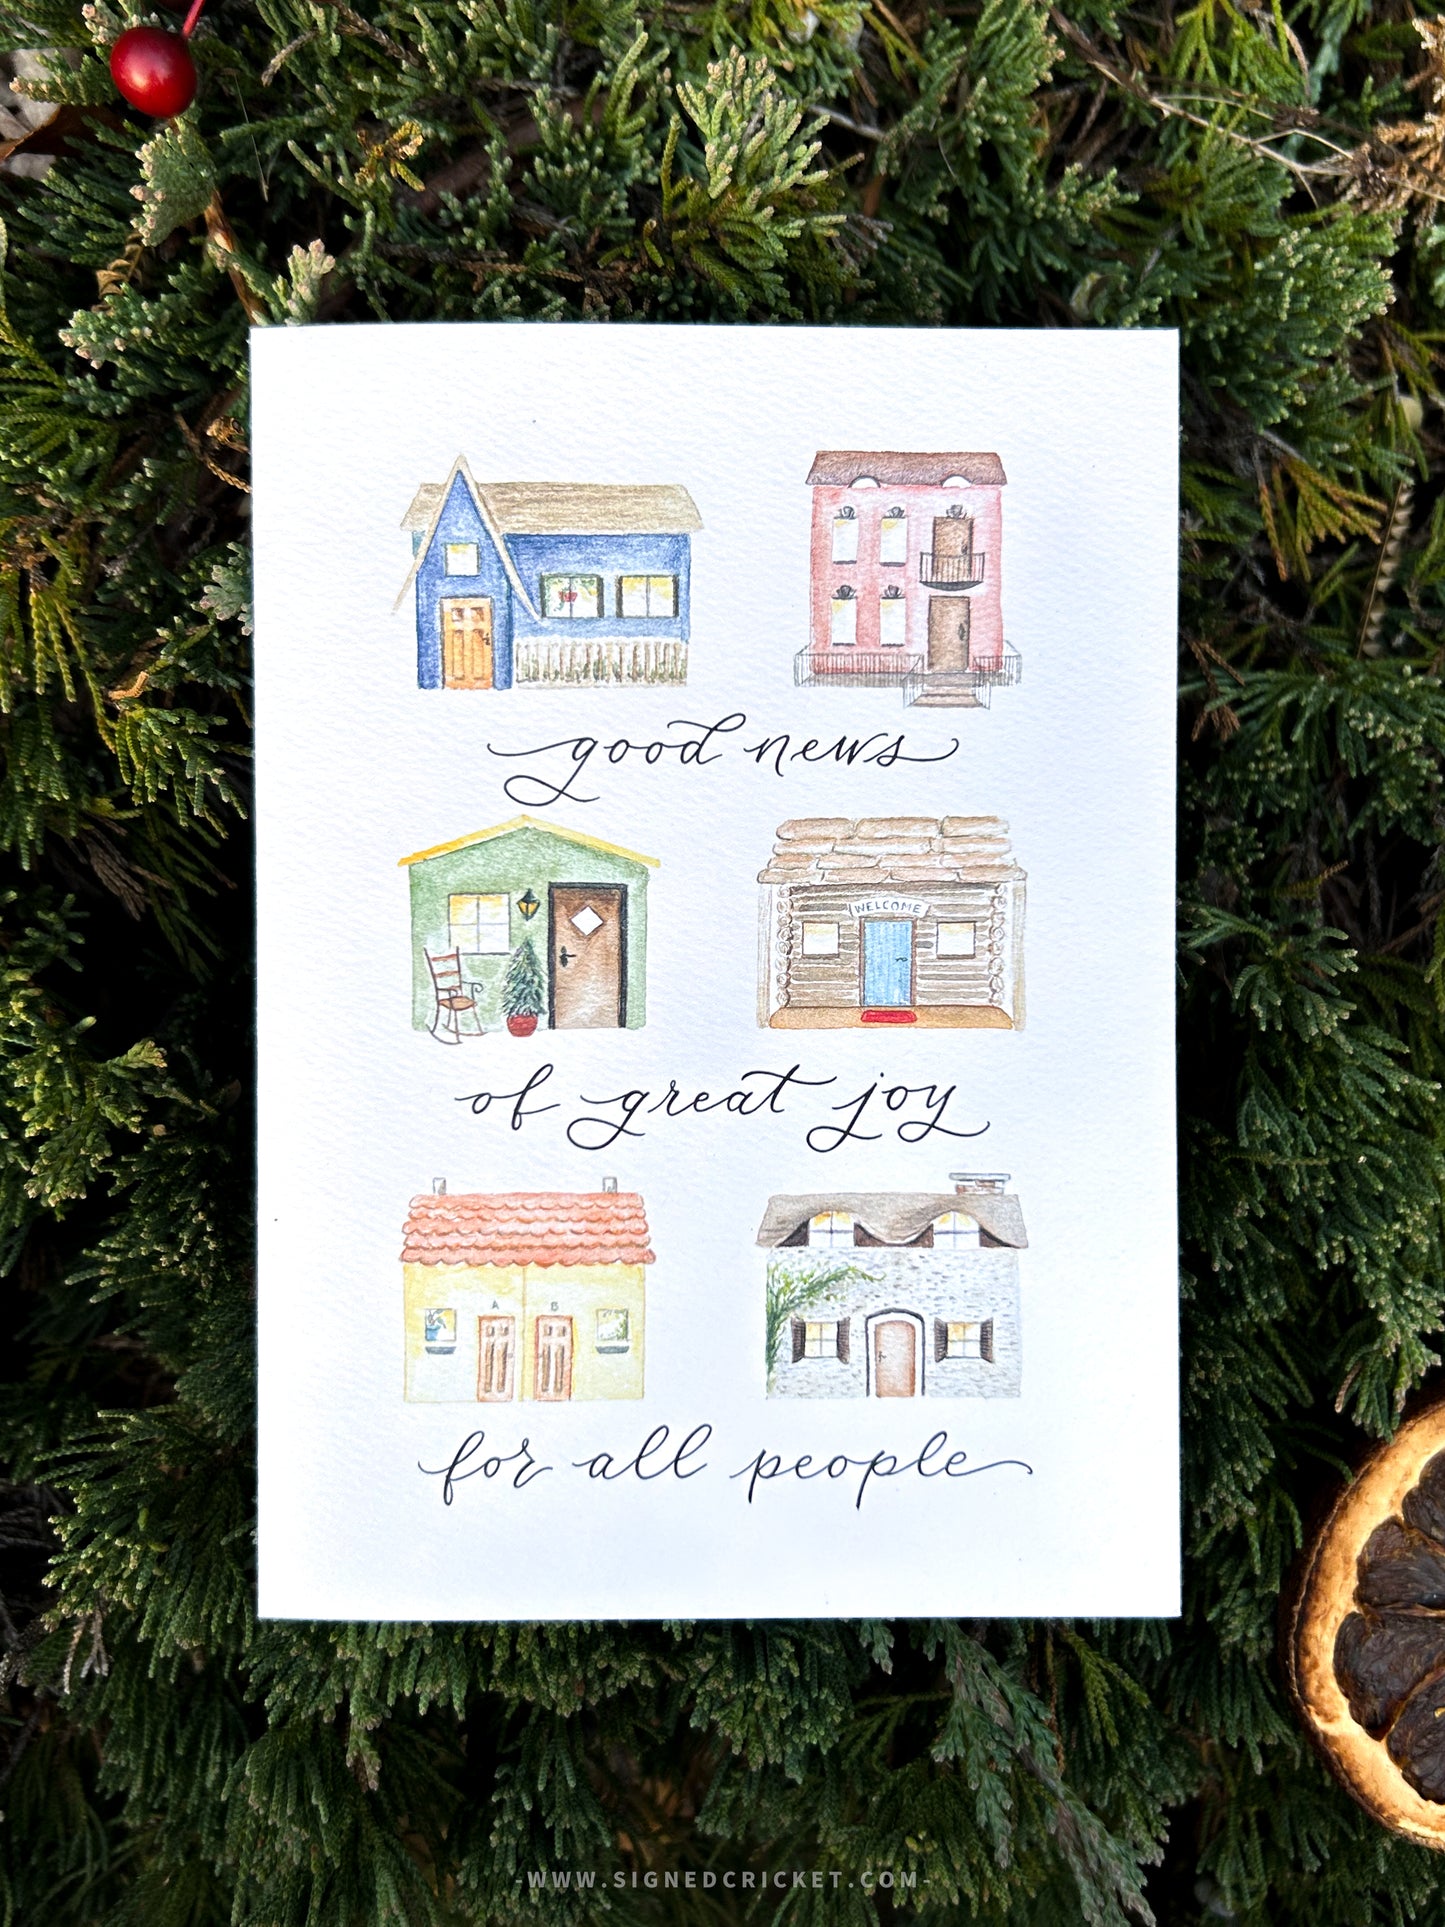 good news
WELCOME
of great joy
A B
for all people
-WWW.SIGNEDCRICKET.COM-